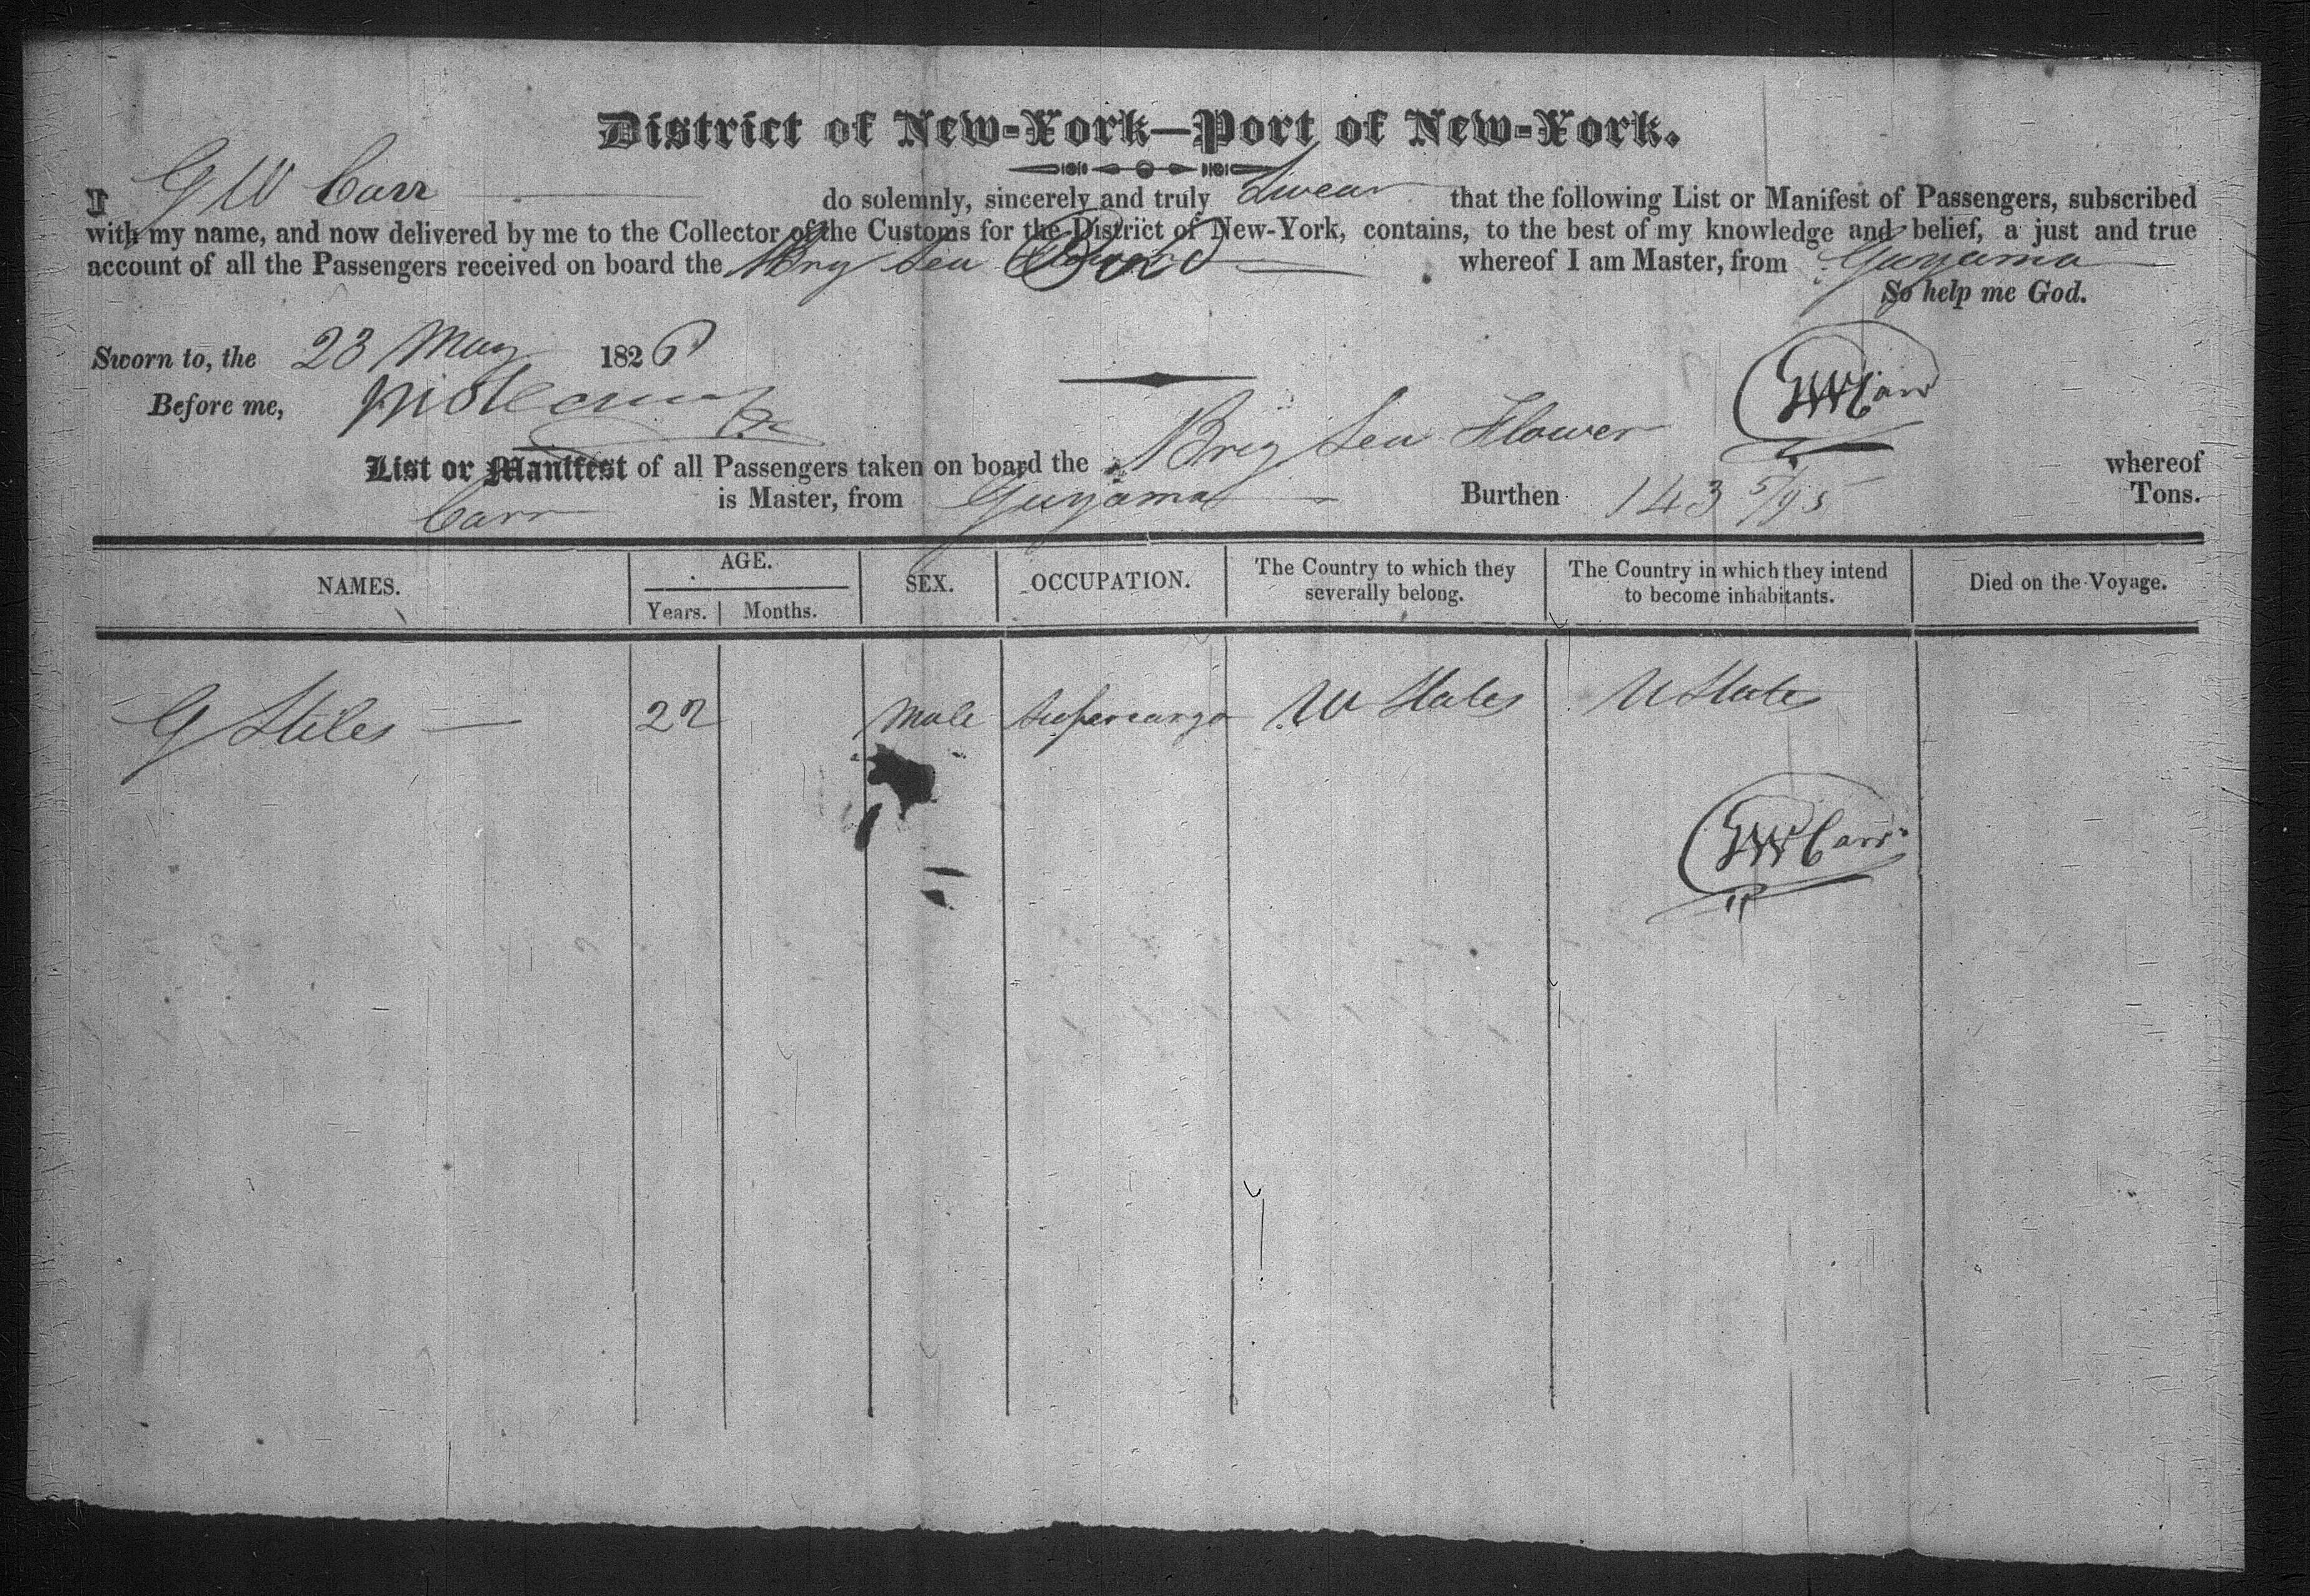 District of New-York—Port of New-York.
I G W Carr do solemnly, sincerely and truly Swear that the following List or Manifest of Passengers, subscribed
with my name, and now delivered by me to the Collector of the Customs for the District of New-York, contains, to the best of my knowledge and belief, a just and true
account of all the Passengers received on board the Brig Sea whereof I am Master, from Guyama
So help me God.
Sworn to, the 23 May 1826
Before me,
GWCarr
List or Manifest of all Passengers taken on board the Brig Sea Flower whereof
Carr is Master, from Guyama Burthen 143 5/95 Tons.
NAMES. AGE. Years. Months. SEX. OCCUPATION. The Country to which they severally belong. The Country in which they intend to become inhabitants. Died on the Voyage.
G Stiles 27 Male Supercargo U States U States
GWCarr